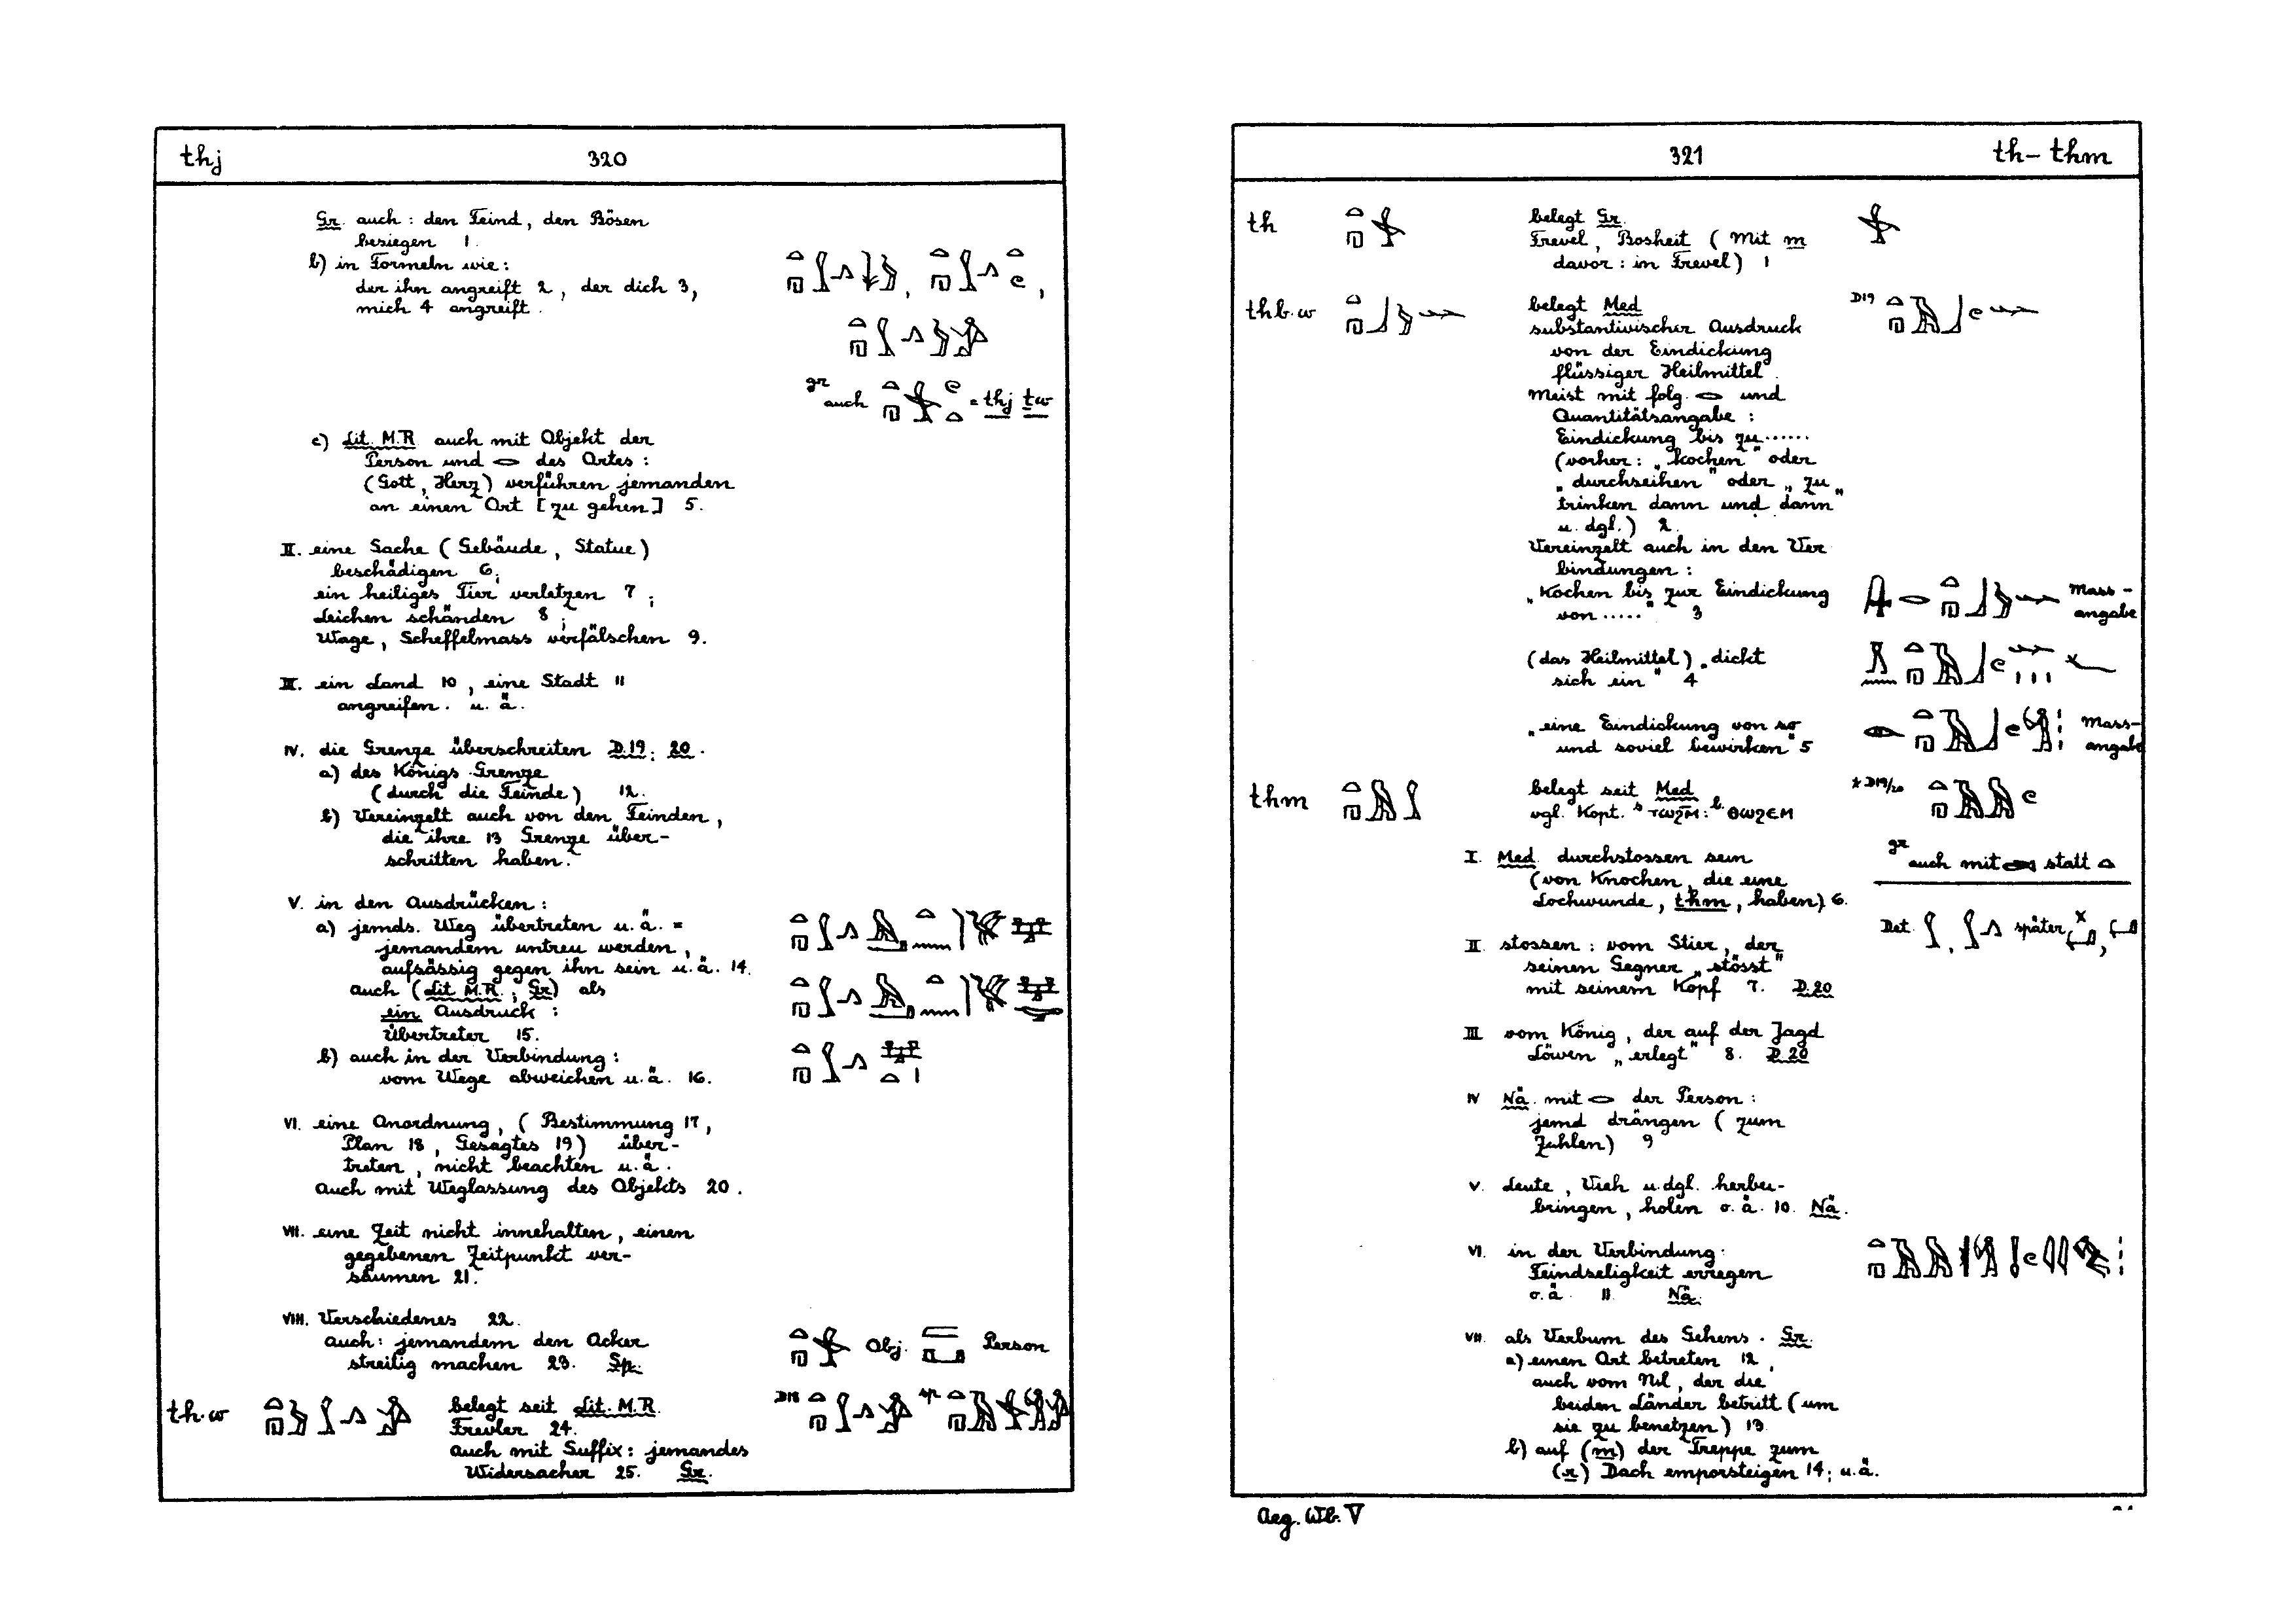 thj 320
Gr. auch : den Feind, den Bösen
besiegen 1.
b) in Formeln wie:
der ihn angreift 2, der dich 3,
mich 4 angreift.
gr auch = thj tw
c) Lit. M.R auch mit Objekt der
Person und 𓂋 des Ortes :
(Gott, Herz) verführen jemanden
an einen Ort [zu gehen] 5.
II. eine Sache (Gebäude, Statue)
beschädigen 6;
ein heiliges Tier verletzen 7 ;
Leichen schänden 8 ;
Wage, Scheffelmass verfälschen 9.
III. ein Land 10, eine Stadt 11
angreifen. u. ä.
IV. die Grenze überschreiten D.19. 20.
a) des Königs Grenze
(durch die Feinde) 12.
b) Vereinzelt auch von den Feinden,
die ihre 13 Grenze über-
schritten haben.
V. in den Ausdrücken :
a) jemds. Weg übertreten u. ä. =
jemandem untreu werden,
aufsässig gegen ihn sein u. ä. 14.
auch (Lit M.R., Gr) als
ein Ausdruck :
Übertreter 15.
b) auch in der Verbindung :
vom Wege abweichen u. ä. 16.
VI. eine Anordnung, (Bestimmung 17,
Plan 18, Gesagtes 19) über-
treten, nicht beachten u. ä.
Auch mit Weglassung des Objekts 20.
VII. eine Zeit nicht innehalten, einen
gegebenen Zeitpunkt ver-
säumen 21.
VIII. Verschiedenes 22.
auch: jemandem den Acker
streitig machen 23. Sp. Obj. Person
th.w belegt seit Lit. M.R. D18 sp
Frevler 24.
auch mit Suffix: jemandes
Widersacher 25. Gr.
321 th – thm
th belegt Gr.
Frevel, Bosheit (Mit m
davor : in Frevel) 1
thb.w belegt Med D19
substantivischer Ausdruck
von der Eindickung
flüssiger Heilmittel.
Meist mit folg. 𓂋 und
Quantitätsangabe :
Eindickung bis zu ......
(vorher : „kochen" oder
„durchseihen" oder „zu
trinken dann und dann"
u. dgl.) 2.
Vereinzelt auch in den Ver
bindungen :
„Kochen bis zur Eindickung Mass-
von ....." 3 angabe
(das Heilmittel) „dickt
sich ein" 4
„eine Eindickung von so Mass-
und soviel bewirken" 5 angabe
thm belegt seit Med * D19/20
vgl. Kopt. s ⲧⲱϩⲙ̄ : b. ⲑⲱϩⲉⲙ
I. Med. durchstossen sein
(von Knochen, die eine
Lochwunde, thm, haben) 6.
gr auch mit statt 𓏏
Det. , später ,
II stossen : vom Stier, der
seinen Gegner „stösst"
mit seinem Kopf 7. D.20
III vom König, der auf der Jagd
Löwen „erlegt" 8. D.20
IV Nä. mit 𓂋 der Person :
jemd drängen (zum
Zahlen) 9
V. Leute, Vieh u.dgl. herbei-
bringen, holen o. ä. 10. Nä.
VI. in der Verbindung :
Feindseligkeit erregen
o. ä. 11 Nä.
VII. als Verbum des Gehens. Gr.
a) einen Ort betreten 12,
auch vom Nil, der die
beiden Länder betritt (um
sie zu benetzen) 13
b) auf (m) der Treppe zum
(r) Dach emporsteigen 14; u. ä.
Aeg. Wb. V